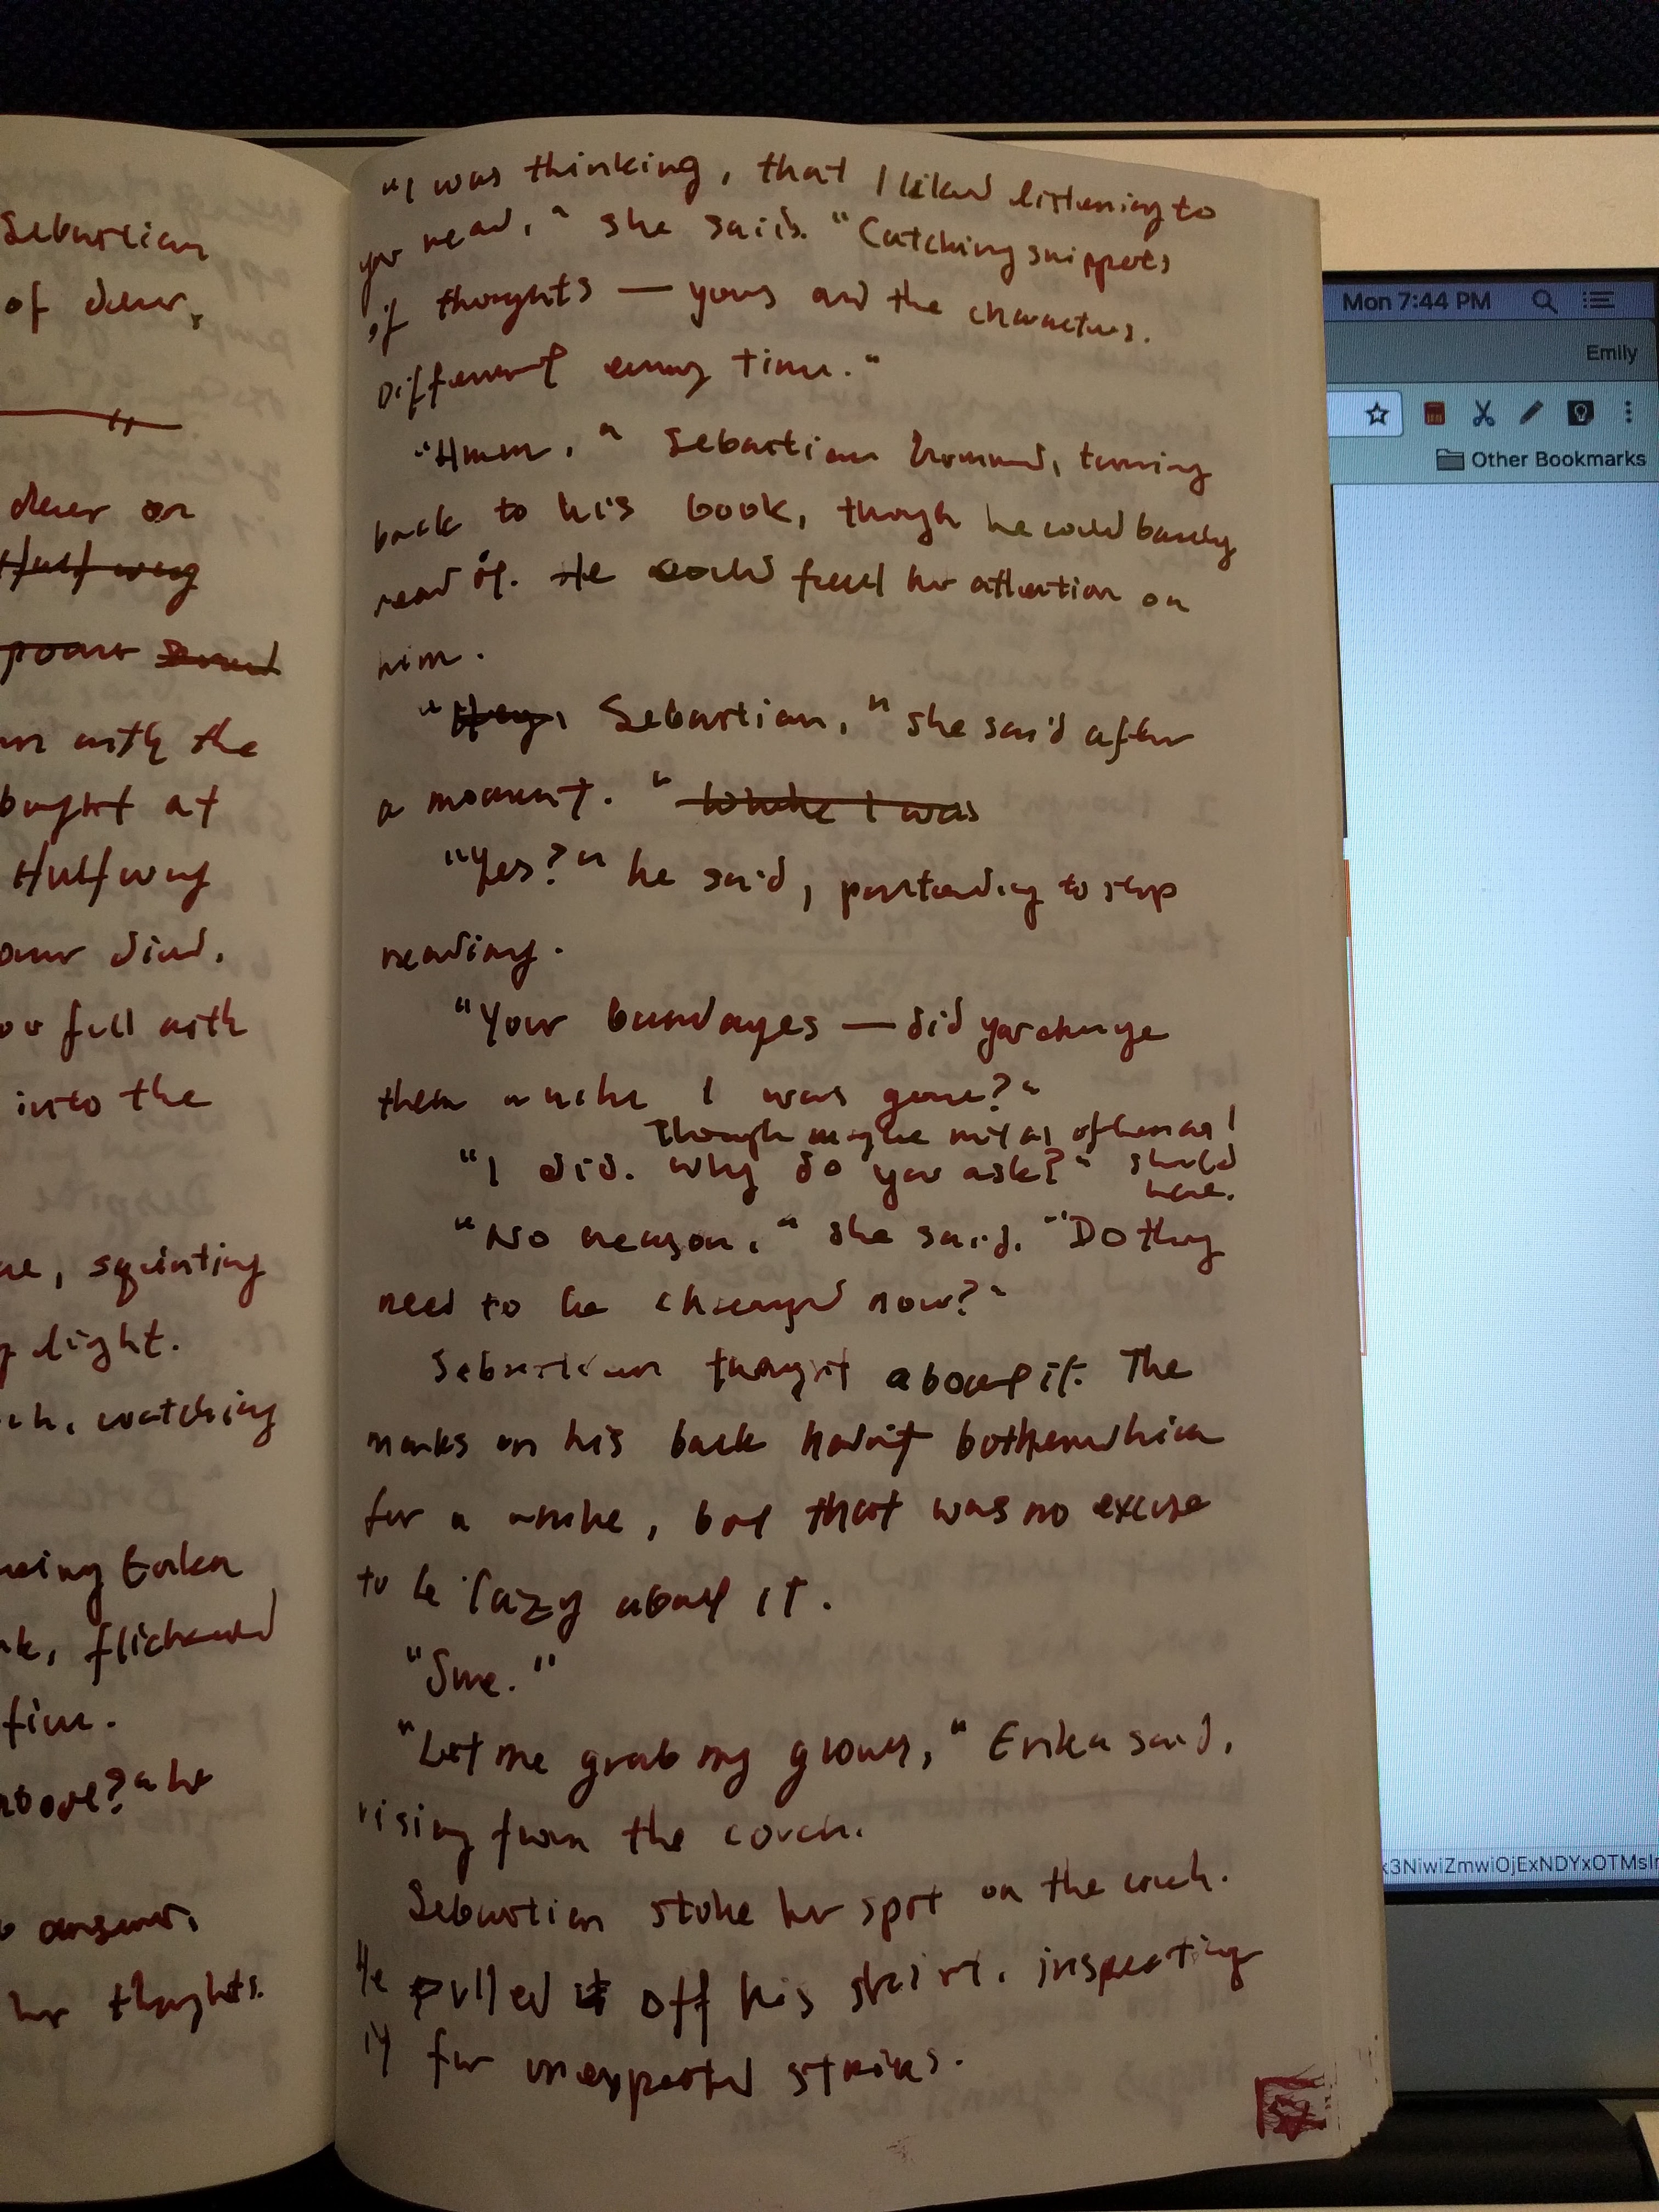 Sebastian
of deer,
deer or
Halfway
poar
an with the
bought at
Halfway
our died.
full with
into the
squinting
light.
watching
Erika
flickered
fine.
above?" he
answer,
her thoughts.
"I was thinking, that I liked listening to
you read," she said. "Catching snippets
of thoughts — yours and the characters.
Different every time."
"Hmm," Sebastian hummed, turning
back to his book, though he could barely
read it. He could feel her attention on
him.
"Hey, Sebastian," she said after
a moment. "While I was
"Yes?" he said, pretending to stop
reading.
"Your bandages — did you change
them while I was gone?"
Though maybe not as often as I
"I did. Why do you ask?" should
have.
"No reason," she said. "Do they
need to be changed now?"
Sebastian thought about it. The
marks on his back hadn't bothered him
for a while, but that was no excuse
to be lazy about it.
"Sure."
"Let me grab my gloves," Erika said,
rising from the couch.
Sebastian stole her spot on the couch.
He pulled it off his shirt, inspecting
it for unexpected stains.
Mon 7:44 PM
Emily
Other Bookmarks
3NiwiZmwiOjExNDYxOTMsIn